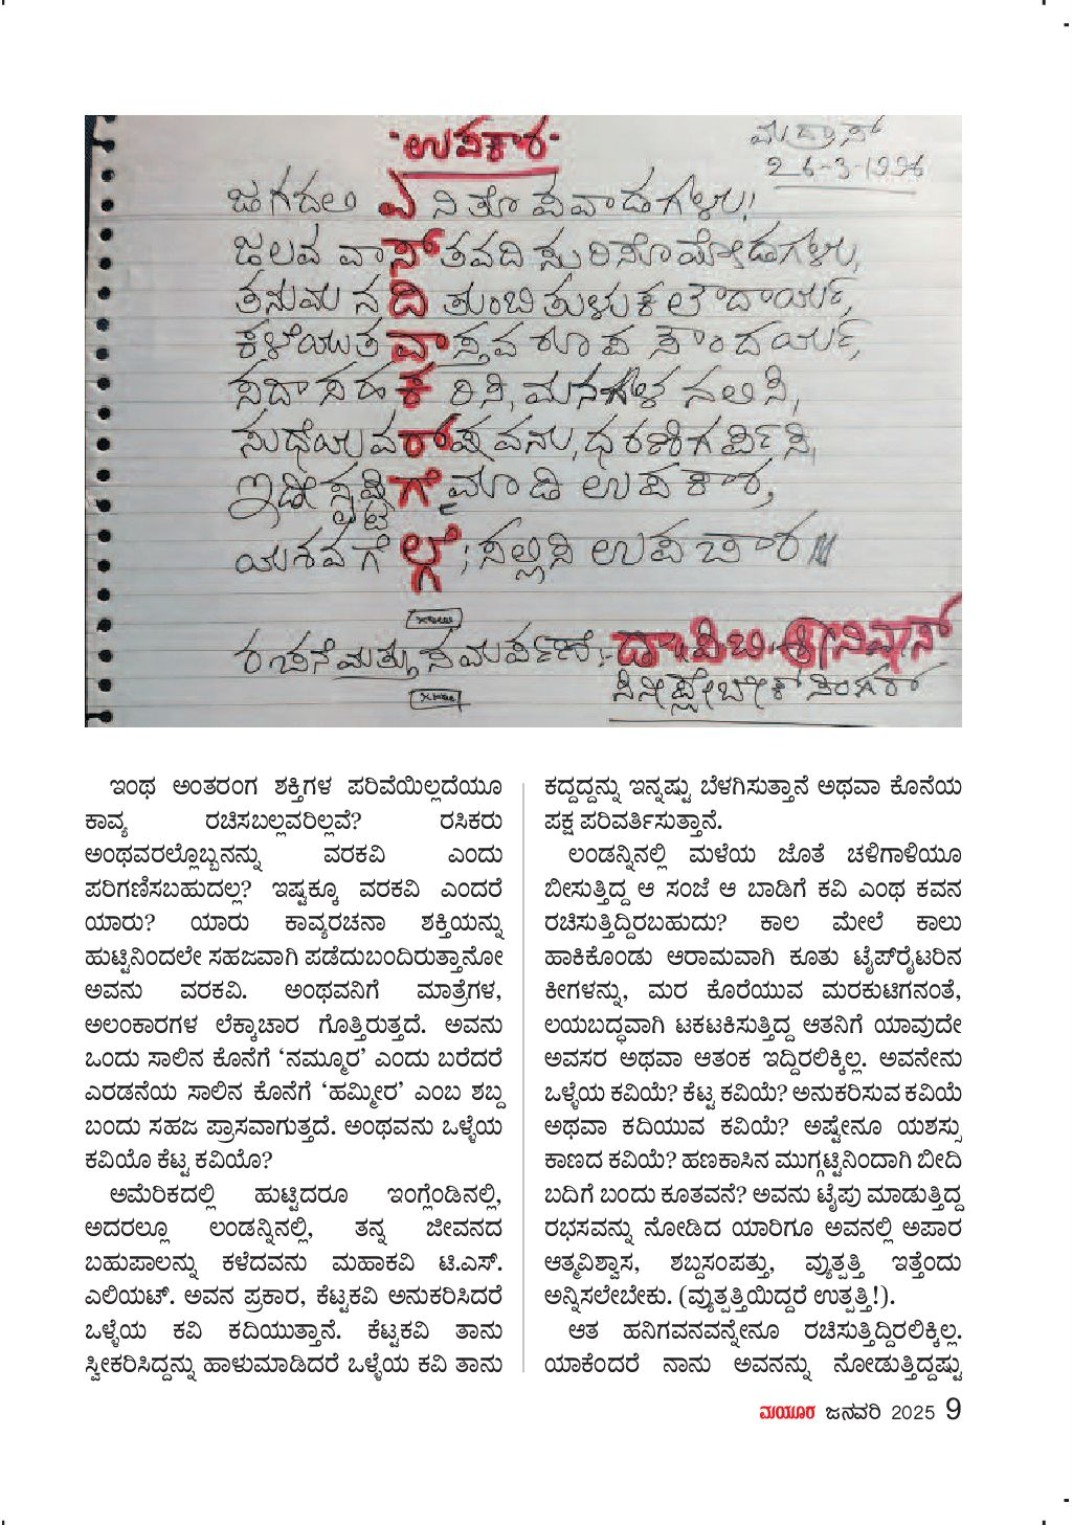 ಉಪಕಾರ
ಮದ್ರಾಸ್
26-3-1996
ಜಗದಲಿ ಎನಿತೊ ಪವಾಡಗಳಲು!
ಜಲವ ವಾಸ್ತವದಿ ಸುರಿಸೊಮೋಡಗಳಲು,
ತನುಮನದಿ ತುಂಬಿತುಳುಕಲೌದಾರ್ಯ,
ಕಳೆಯುತ ವಾಸ್ತವ ರೂಪ ಸೌಂದರ್ಯ,
ಸದಾ ಸಹಕರಿಸಿ, ಮನಗಳ ನಲಿಸಿ,
ಸುಧೆಯ ವರ್ಷವನು, ಧರಣಿಗರ್ಪಿಸಿ,
ಇಡೀ ಸೃಷ್ಟಿಗೆ ಮಾಡಿ ಉಪಕಾರ,
ಯಶವಗೆಲ್ಗೆ; ಸಲ್ಲಿಸಿ ಉಪಚಾರ
ರಚನೆ ಮತ್ತು ಸಮರ್ಪಣೆ:- ಡಾ. ಪಿ.ಬಿ. ಶ್ರೀನಿವಾಸ್
ಸಿನೀಪ್ಲೇಬೇಕ್ ಸಿಂಗರ್
ಇಂಥ ಅಂತರಂಗ ಶಕ್ತಿಗಳ ಪರಿವೆಯಿಲ್ಲದೆಯೂ
ಕಾವ್ಯ ರಚಿಸಬಲ್ಲವರಿಲ್ಲವೆ? ರಸಿಕರು
ಅಂಥವರಲ್ಲೊಬ್ಬನನ್ನು ವರಕವಿ ಎಂದು
ಪರಿಗಣಿಸಬಹುದಲ್ಲ? ಇಷ್ಟಕ್ಕೂ ವರಕವಿ ಎಂದರೆ
ಯಾರು? ಯಾರು ಕಾವ್ಯರಚನಾ ಶಕ್ತಿಯನ್ನು
ಹುಟ್ಟಿನಿಂದಲೇ ಸಹಜವಾಗಿ ಪಡೆದುಬಂದಿರುತ್ತಾನೋ
ಅವನು ವರಕವಿ. ಅಂಥವನಿಗೆ ಮಾತ್ರೆಗಳ,
ಅಲಂಕಾರಗಳ ಲೆಕ್ಕಾಚಾರ ಗೊತ್ತಿರುತ್ತದೆ. ಅವನು
ಒಂದು ಸಾಲಿನ ಕೊನೆಗೆ ‘ನಮ್ಮೂರ’ ಎಂದು ಬರೆದರೆ
ಎರಡನೆಯ ಸಾಲಿನ ಕೊನೆಗೆ ‘ಹಮ್ಮೀರ’ ಎಂಬ ಶಬ್ದ
ಬಂದು ಸಹಜ ಪ್ರಾಸವಾಗುತ್ತದೆ. ಅಂಥವನು ಒಳ್ಳೆಯ
ಕವಿಯೊ ಕೆಟ್ಟ ಕವಿಯೊ?
ಅಮೆರಿಕದಲ್ಲಿ ಹುಟ್ಟಿದರೂ ಇಂಗ್ಲೆಂಡಿನಲ್ಲಿ,
ಅದರಲ್ಲೂ ಲಂಡನ್ನಿನಲ್ಲಿ, ತನ್ನ ಜೀವನದ
ಬಹುಪಾಲನ್ನು ಕಳೆದವನು ಮಹಾಕವಿ ಟಿ.ಎಸ್.
ಎಲಿಯಟ್. ಅವನ ಪ್ರಕಾರ, ಕೆಟ್ಟಕವಿ ಅನುಕರಿಸಿದರೆ
ಒಳ್ಳೆಯ ಕವಿ ಕದಿಯುತ್ತಾನೆ. ಕೆಟ್ಟಕವಿ ತಾನು
ಸ್ವೀಕರಿಸಿದ್ದನ್ನು ಹಾಳುಮಾಡಿದರೆ ಒಳ್ಳೆಯ ಕವಿ ತಾನು
ಕದ್ದದ್ದನ್ನು ಇನ್ನಷ್ಟು ಬೆಳಗಿಸುತ್ತಾನೆ ಅಥವಾ ಕೊನೆಯ
ಪಕ್ಷ ಪರಿವರ್ತಿಸುತ್ತಾನೆ.
ಲಂಡನ್ನಿನಲ್ಲಿ ಮಳೆಯ ಜೊತೆ ಚಳಿಗಾಳಿಯೂ
ಬೀಸುತ್ತಿದ್ದ ಆ ಸಂಜೆ ಆ ಬಾಡಿಗೆ ಕವಿ ಎಂಥ ಕವನ
ರಚಿಸುತ್ತಿದ್ದಿರಬಹುದು? ಕಾಲ ಮೇಲೆ ಕಾಲು
ಹಾಕಿಕೊಂಡು ಆರಾಮವಾಗಿ ಕೂತು ಟೈಪ್‌ರೈಟರಿನ
ಕೀಗಳನ್ನು, ಮರ ಕೊರೆಯುವ ಮರಕುಟಿಗನಂತೆ,
ಲಯಬದ್ಧವಾಗಿ ಟಕಟಕಿಸುತ್ತಿದ್ದ ಆತನಿಗೆ ಯಾವುದೇ
ಅವಸರ ಅಥವಾ ಆತಂಕ ಇದ್ದಿರಲಿಕ್ಕಿಲ್ಲ. ಅವನೇನು
ಒಳ್ಳೆಯ ಕವಿಯೆ? ಕೆಟ್ಟ ಕವಿಯೆ? ಅನುಕರಿಸುವ ಕವಿಯೆ
ಅಥವಾ ಕದಿಯುವ ಕವಿಯೆ? ಅಷ್ಟೇನೂ ಯಶಸ್ಸು
ಕಾಣದ ಕವಿಯೆ? ಹಣಕಾಸಿನ ಮುಗ್ಗಟ್ಟಿನಿಂದಾಗಿ ಬೀದಿ
ಬದಿಗೆ ಬಂದು ಕೂತವನೆ? ಅವನು ಟೈಪು ಮಾಡುತ್ತಿದ್ದ
ರಭಸವನ್ನು ನೋಡಿದ ಯಾರಿಗೂ ಅವನಲ್ಲಿ ಅಪಾರ
ಆತ್ಮವಿಶ್ವಾಸ, ಶಬ್ದಸಂಪತ್ತು, ವ್ಯುತ್ಪತ್ತಿ ಇತ್ತೆಂದು
ಅನ್ನಿಸಲೇಬೇಕು. (ವ್ಯುತ್ಪತ್ತಿಯಿದ್ದರೆ ಉತ್ಪತ್ತಿ!).
ಆತ ಹನಿಗವನವನ್ನೇನೂ ರಚಿಸುತ್ತಿದ್ದಿರಲಿಕ್ಕಿಲ್ಲ.
ಯಾಕೆಂದರೆ ನಾನು ಅವನನ್ನು ನೋಡುತ್ತಿದ್ದಷ್ಟು
ಮಯೂರ ಜನವರಿ 2025 9